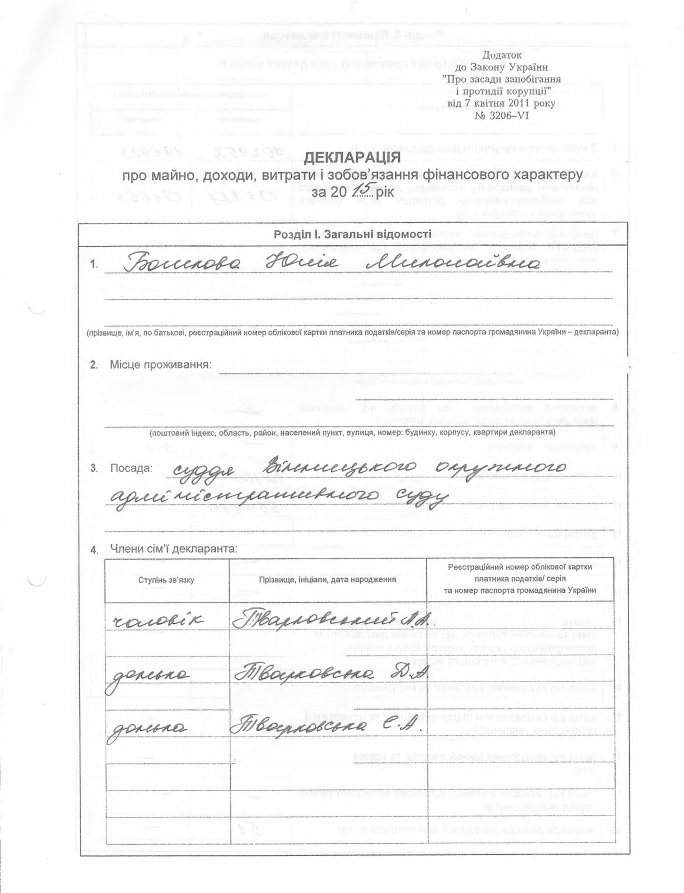 Додаток
до Закону України
"Про засади запобігання
і протидії корупції"
від 7 квітня 2011 року
№ 3206–VI
ДЕКЛАРАЦІЯ
про майно, доходи, витрати і зобов'язання фінансового характеру
за 20 15 рік
Розділ I. Загальні відомості
1. Бошкова Юлія Миколаївна
(прізвище, ім'я, по батькові, реєстраційний номер облікової картки платника податків/серія та номер паспорта громадянина України – декларанта)
2. Місце проживання:
(поштовий індекс, область, район, населений пункт, вулиця, номер: будинку, корпусу, квартири декларанта)
3. Посада: суддя Вінницького окружного
адміністративного суду
4. Члени сім'ї декларанта:
Ступінь зв'язку Прізвище, ініціали, дата народження Реєстраційний номер облікової картки
платника податків/ серія
та номер паспорта громадянина України
чоловік Тварковський А.А.
донька Тварковська Д.А.
донька Тварковська Є.А.